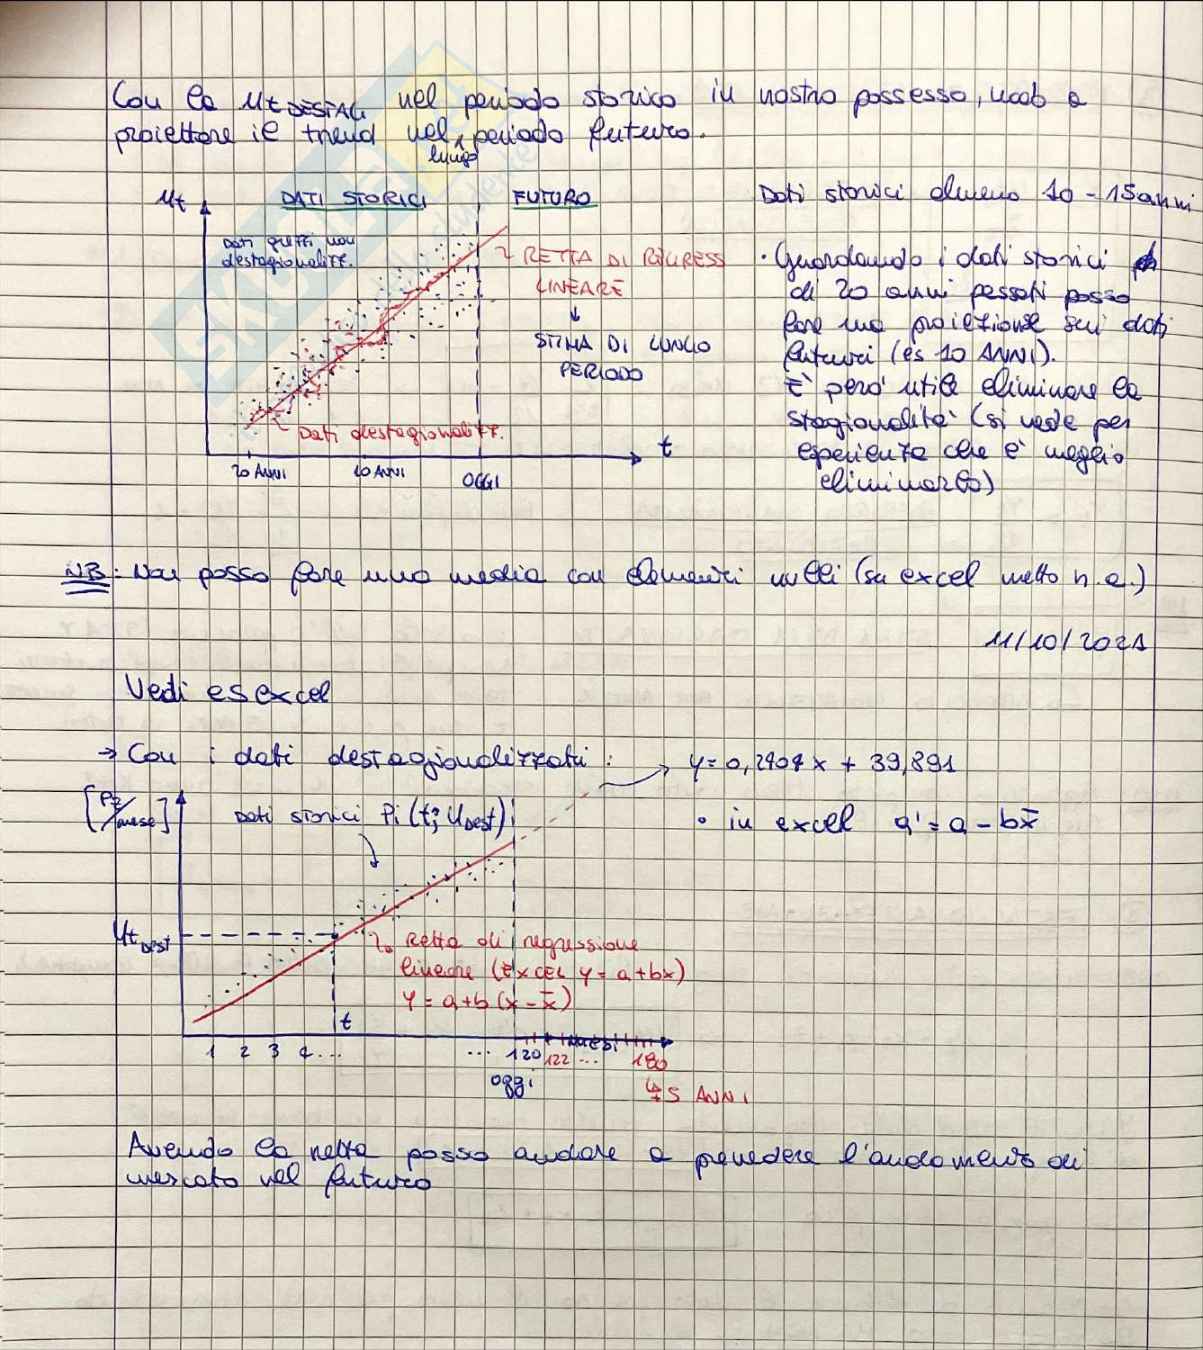 Con la μt DESTAG nel periodo storico in nostro possesso, vado a
proiettare il trend nel lungo periodo futuro.
μt
DATI STORICI
FUTURO
Dati storici almeno 10 - 15 anni
Dati grezzi, non
destagionalizz.
RETTA DI REGRESS
LINEARE
↓
STIMA DI LUNGO
PERIODO
Dati destagionalizz.
t
20 ANNI
10 ANNI
OGGI
• Guardando i dati storici
di 20 anni passati posso
fare una proiezione sui dati
futuri (es 10 ANNI).
E' però utile eliminare la
stagionalità (si vede per
esperienza che è meglio
eliminarla)
NB: Non posso fare una media con elementi nulli (su excel metto n.a.)
11/10/2021
Vedi es excel
→ Con i dati destagionalizzati:
y = 0,2904x + 39,891
• in excel a' = a - bx̄
[Pz/mese]
Dati storici Pi (ti; μDEST)
μt DEST
Retta di regressione
lineare (EXCEL y = a+bx)
y = a+b (x-x̄)
t
1 2 3 4 ...
... 120 122 ... 180
mesi
oggi
↳ 5 ANNI
Avendo la retta posso andare a prevedere l'andamento di
mercato nel futuro